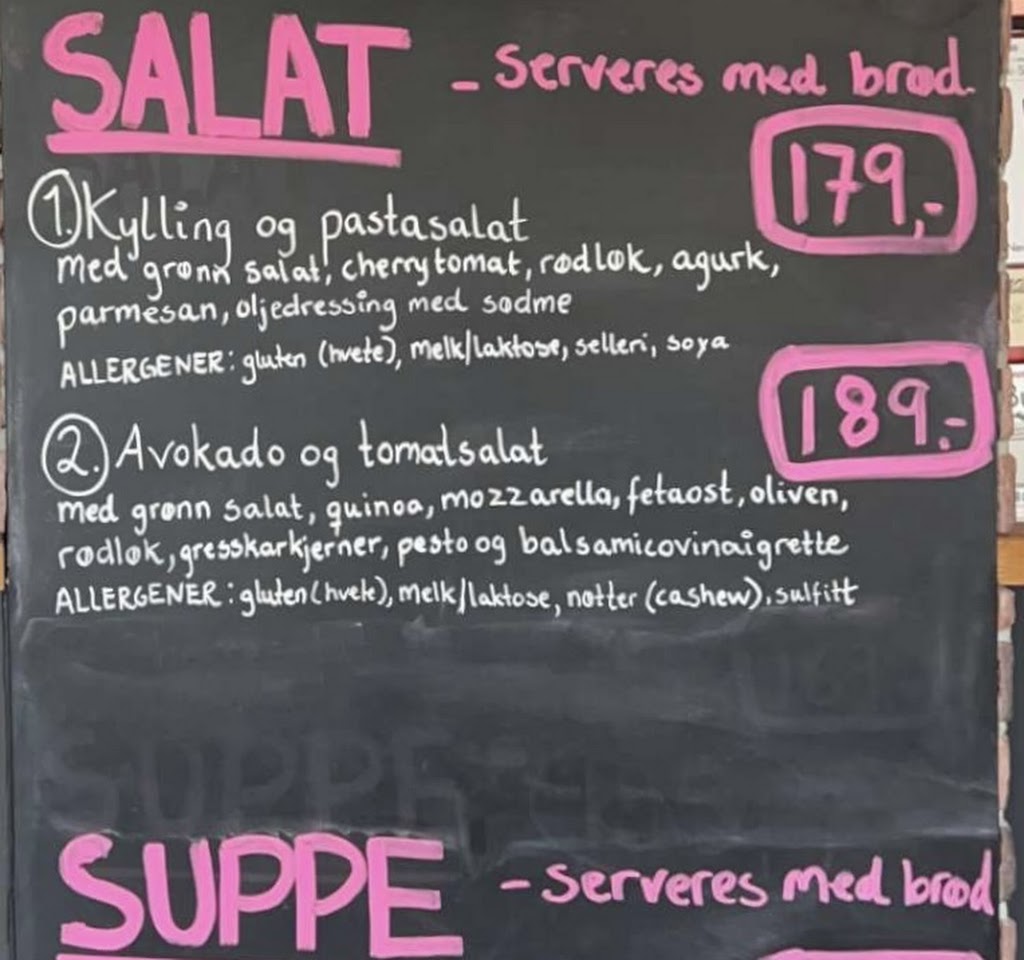 SALAT - Serveres med brød.
179,-
1. Kylling og pastasalat
med grønn salat, cherrytomat, rødløk, agurk,
parmesan, oljedressing med sødme
ALLERGENER: gluten (hvete), melk/laktose, selleri, soya
189.-
2. Avokado og tomatsalat
med grønn salat, quinoa, mozzarella, fetaost, oliven,
rødløk, gresskarkjerner, pesto og balsamicovinaigrette
ALLERGENER: gluten (hvete), melk/laktose, nøtter (cashew), sulfitt
SUPPE - serveres med brød